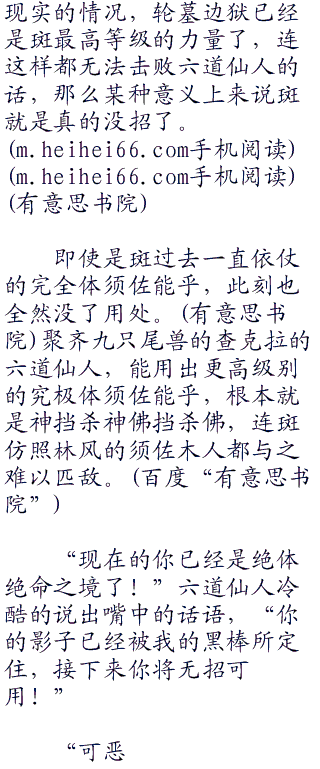 现实的情况，轮墓边狱已经
是斑最高等级的力量了，连
这样都无法击败六道仙人的
话，那么某种意义上来说斑
就是真的没招了。
(m.heihei66.com手机阅读)
(m.heihei66.com手机阅读)
(有意思书院)
即使是斑过去一直依仗
的完全体须佐能乎，此刻也
全然没了用处。(有意思书
院)聚齐九只尾兽的查克拉的
六道仙人，能用出更高级别
的究极体须佐能乎，根本就
是神挡杀神佛挡杀佛，连斑
仿照林风的须佐木人都与之
难以匹敌。(百度“有意思书
院”)
“现在的你已经是绝体
绝命之境了！”六道仙人冷
酷的说出嘴中的话语，“你
的影子已经被我的黑棒所定
住，接下来你将无招可
用！”
“可恶